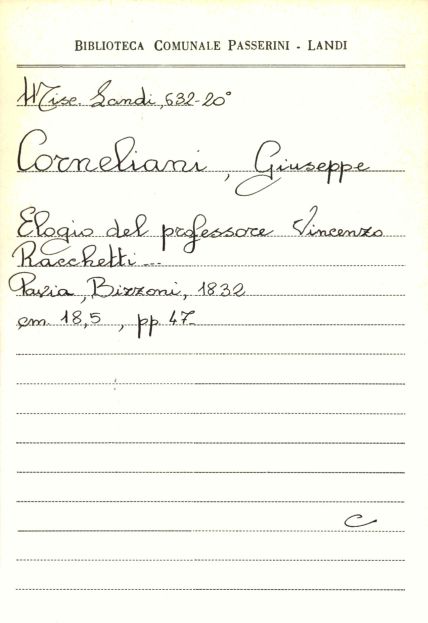 BIBLIOTECA COMUNALE PASSERINI - LANDI
Misc. Landi, 632-20°
Corneliani, Giuseppe
Elogio del professore Vincenzo
Racchetti...
Pavia, Bizzoni, 1832
cm. 18,5, pp. 47.
C